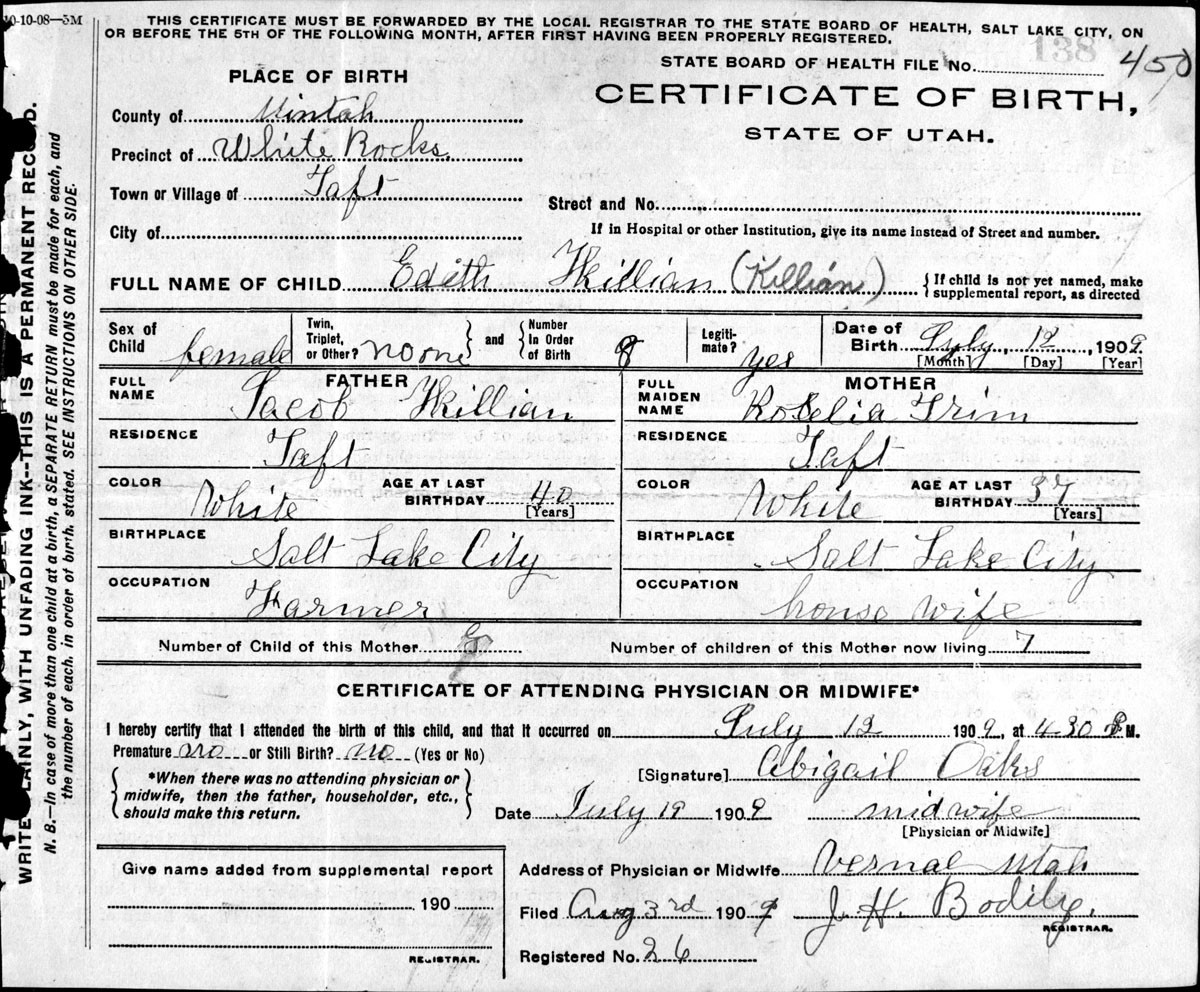 10-10-08—5M
THIS CERTIFICATE MUST BE FORWARDED BY THE LOCAL REGISTRAR TO THE STATE BOARD OF HEALTH, SALT LAKE CITY, ON
OR BEFORE THE 5TH OF THE FOLLOWING MONTH, AFTER FIRST HAVING BEEN PROPERLY REGISTERED.
STATE BOARD OF HEALTH FILE No. 138 450
PLACE OF BIRTH
CERTIFICATE OF BIRTH,
STATE OF UTAH.
County of Uintah
Precinct of White Rocks.
Town or Village of Taft
Street and No.
City of
If in Hospital or other Institution, give its name instead of Street and number.
FULL NAME OF CHILD Edith Killian (Killian) {If child is not yet named, make
supplemental report, as directed
Sex of Child female Twin, Triplet, or Other? no one } and { Number In Order of Birth 8 Legiti-mate? yes Date of Birth July, 12, 1909.
[Month] [Day] [Year]
FATHER
MOTHER
FULL NAME Jacob Killian
FULL MAIDEN NAME Roselia Trim
RESIDENCE Taft
RESIDENCE Taft
COLOR White AGE AT LAST BIRTHDAY 40 [Years]
COLOR White AGE AT LAST BIRTHDAY 37 [Years]
BIRTHPLACE Salt Lake City
BIRTHPLACE Salt Lake City
OCCUPATION Farmer
OCCUPATION house wife
Number of Child of this Mother Number of children of this Mother now living 7
CERTIFICATE OF ATTENDING PHYSICIAN OR MIDWIFE*
I hereby certify that I attended the birth of this child, and that it occurred on July 12 1909, at 430 P M.
Premature no or Still Birth? no (Yes or No)
*When there was no attending physician or
midwife, then the father, householder, etc.,
should make this return.
[Signature] Abigail Oaks
Date July 19 1909 midwife
[Physician or Midwife]
Give name added from supplemental report
190
REGISTRAR.
Address of Physician or Midwife Vernal Utah
Filed Aug 3rd 1909 J. H. Bodily.
REGISTRAR.
Registered No. 26
WRITE PLAINLY, WITH UNFADING INK--THIS IS A PERMANENT RECORD.
N. B.—In case of more than one child at a birth, a SEPARATE RETURN must be made for each, and
the number of each, in order of birth, stated. SEE INSTRUCTIONS ON OTHER SIDE.